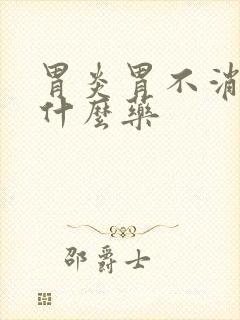 胃炎胃不消
什麼藥
邵爵士